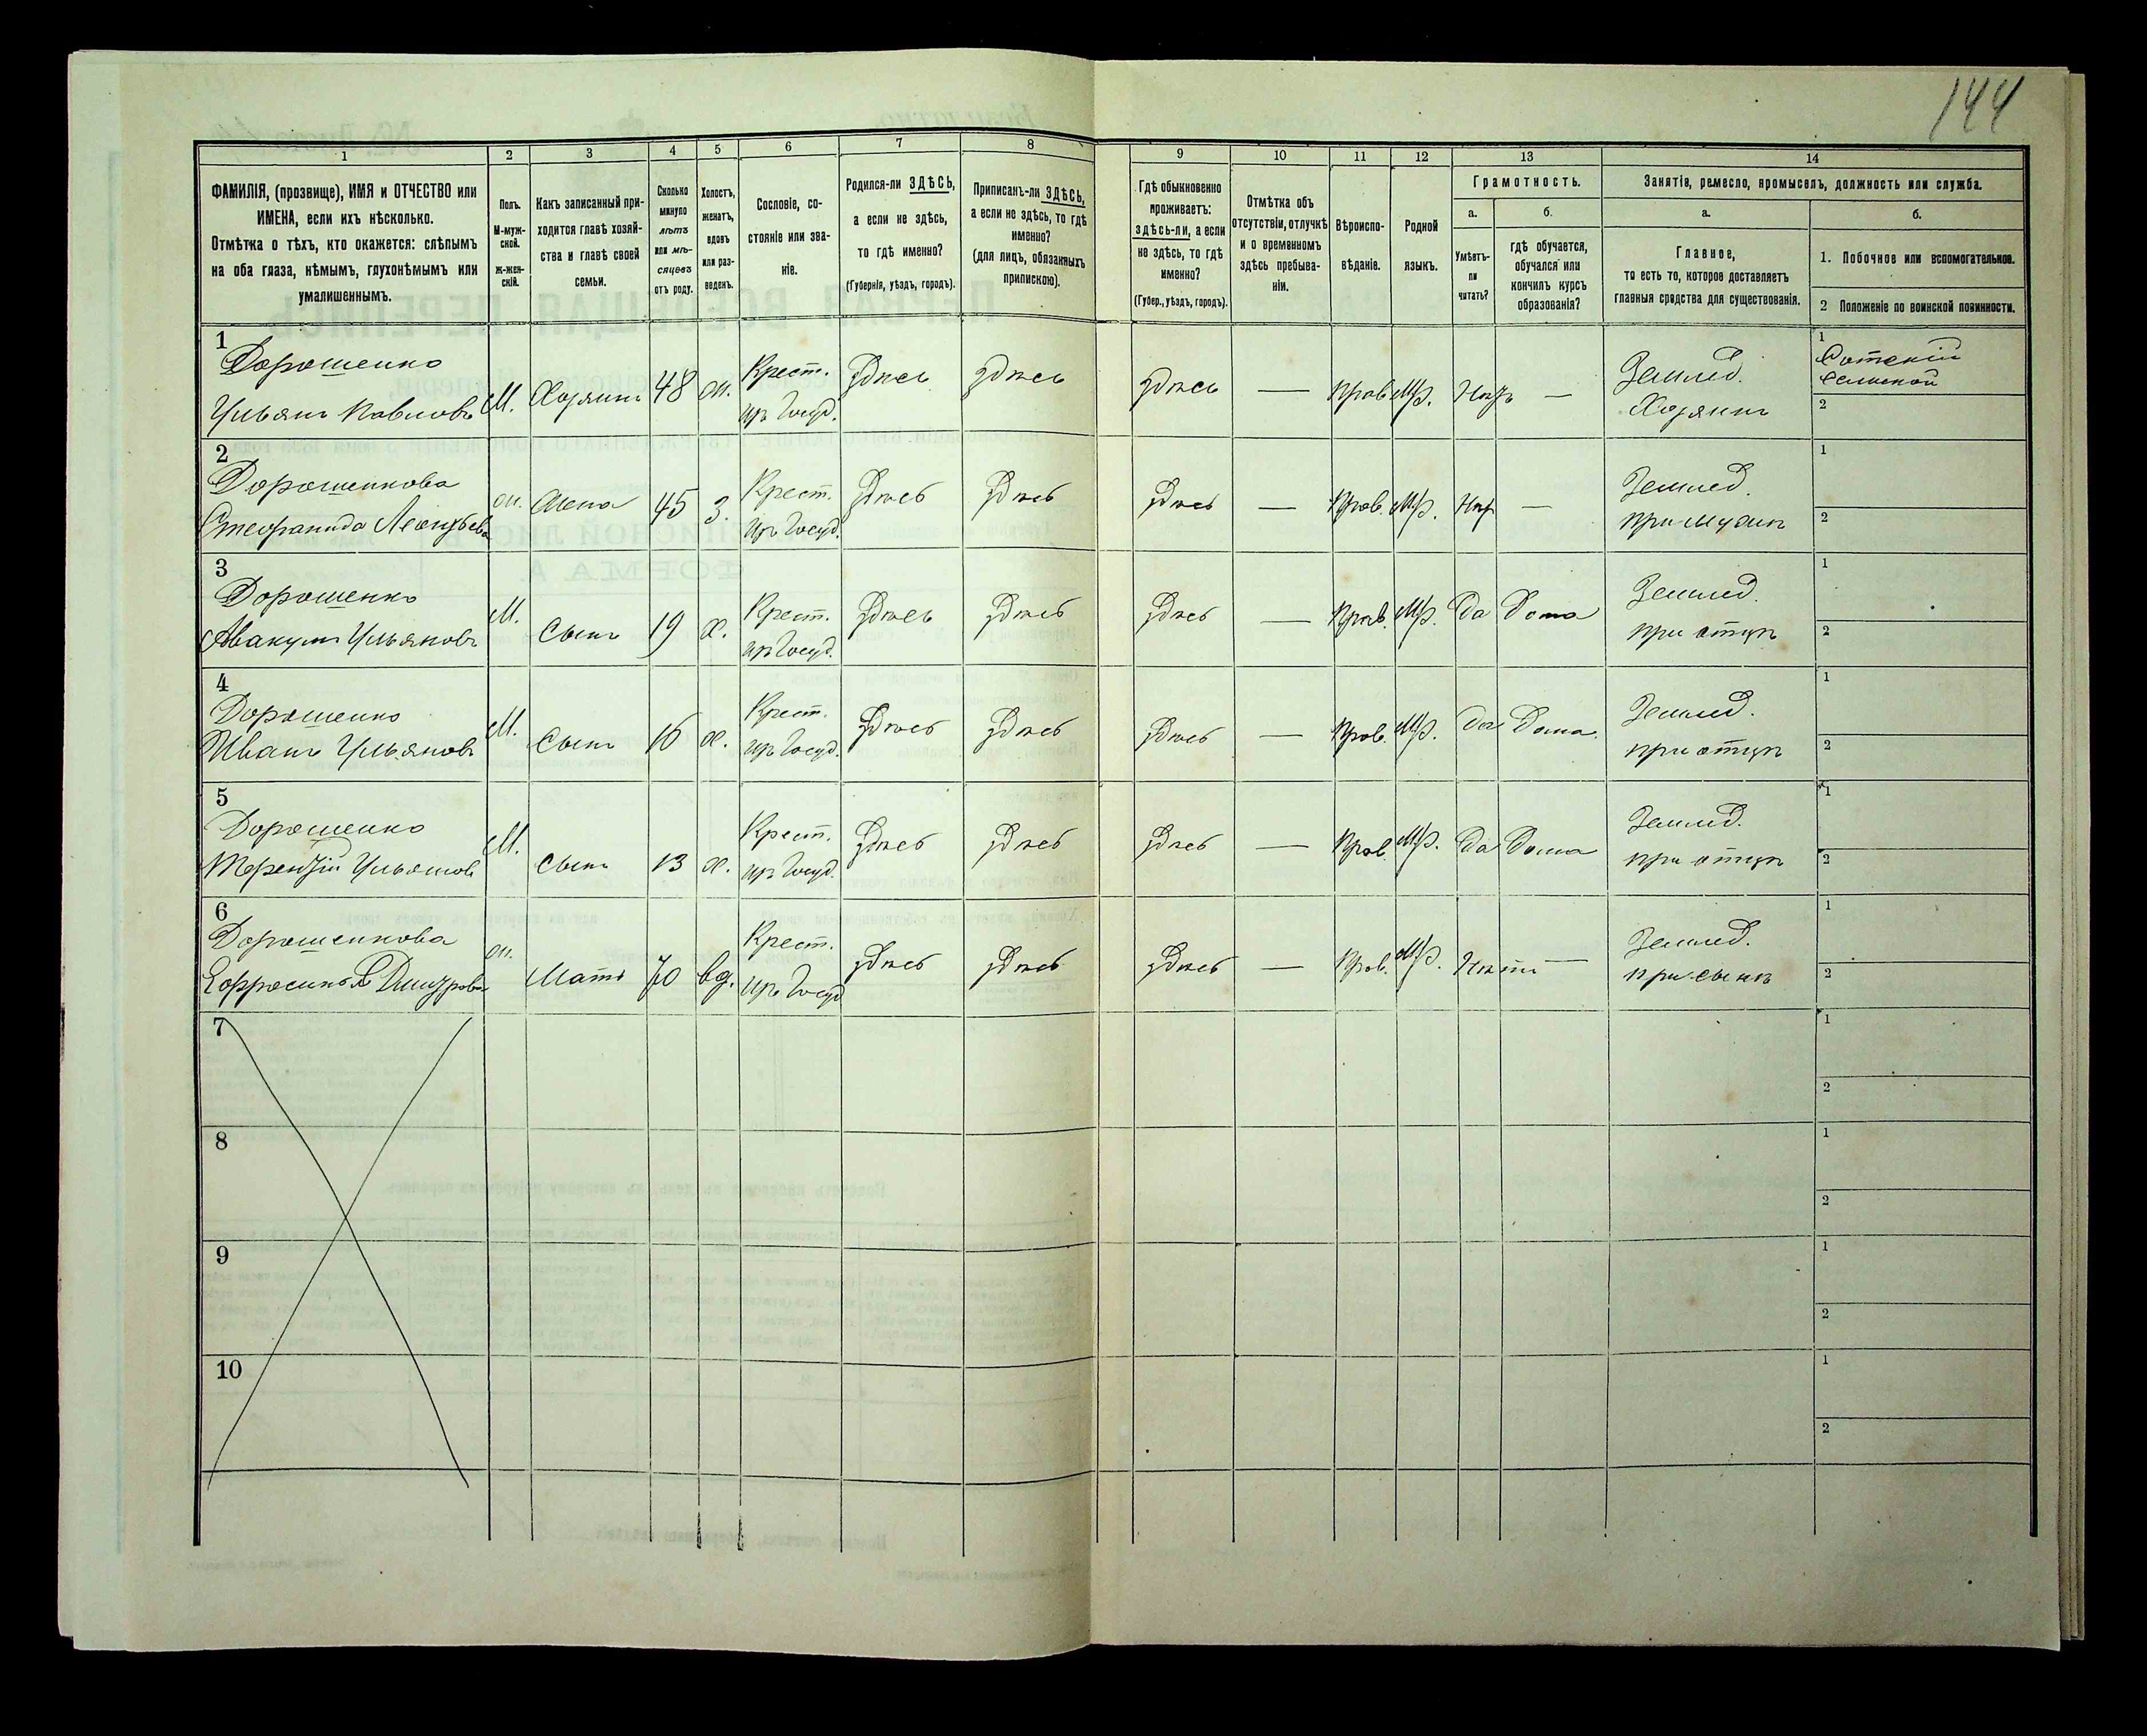 144
1 2 3 4 5 6 7 8 9 10 11 12 13 14
ФАМИЛІЯ, (прозвище), ИМЯ и ОТЧЕСТВО или
ИМЕНА, если ихъ нѣсколько.
Отмѣтка о тѣхъ, кто окажется: слѣпымъ
на оба глаза, нѣмымъ, глухонѣмымъ или
умалишеннымъ.
Полъ.
М-муж-
ской.
Ж-жен-
скій.
Какъ записанный при-
ходится главѣ хозяй-
ства и главѣ своей
семьи.
Сколько
минуло
лѣтъ
или мѣ-
сяцевъ
отъ роду.
Холостъ,
женатъ,
вдовъ
или раз-
веденъ.
Сословіе, со-
стояніе или зва-
ніе.
Родился-ли ЗДѢСЬ,
а если не здѣсь,
то гдѣ именно?
(Губернія, уѣздъ, городъ).
Приписанъ-ли ЗДѢСЬ,
а если не здѣсь, то гдѣ
именно?
(для лицъ, обязанныхъ
припискою).
Гдѣ обыкновенно
проживаетъ:
здѣсь-ли, а если
не здѣсь, то гдѣ
именно?
(Губер., уѣздъ, городъ).
Отмѣтка объ
отсутствіи, отлучкѣ
и о временномъ
здѣсь пребыва-
ніи.
Вѣроиспо-
вѣданіе.
Родной
языкъ.
Грамотность.
а.
Умѣетъ-
ли
читать?
б.
гдѣ обучается,
обучался или
кончилъ курсъ
образованія?
Занятіе, ремесло, промыселъ, должность или служба.
а.
Главное,
то есть то, которое доставляетъ
главныя средства для существованія.
б.
1. Побочное или вспомогательное.
2 Положеніе по воинской повинности.
1
Дорошенко Крест. Здѣсь здѣсь здѣсь — Прав. Мр. Нѣтъ — Землед. 1 Сотскій
сельской
Ульянъ Павловъ М. Хозяинъ 48 ж. изъ Госуд. Хозяинъ 2
2
Дорошенкова ж. жена 45 З. Крест. Здѣсь Здѣсь Здѣсь — Прав. Мр. Нѣтъ — Землед. 1
Стефанида Леонтьева изъ Госуд. при мужѣ 2
3
Дорошенко М. Крест. Здѣсь Здѣсь Здѣсь — Прав. Мр. Да Дома Землед. 1
Авакумъ Ульяновъ Сынъ 19 х. изъ Госуд. при отцѣ 2
4
Дорошенко М. Крест. Здѣсь Здѣсь Здѣсь — Прав. Мр. Да Дома Землед. 1
Иванъ Ульяновъ Сынъ 16 х. изъ Госуд. при отцѣ 2
5
Дорошенко М. Крест. Здѣсь Здѣсь Здѣсь — Прав. Мр. Да Дома Землед. 1
Терентій Ульяновъ Сынъ 13 х. изъ Госуд. при отцѣ 2
6
Дорошенкова ж. Крест. Здѣсь Здѣсь Здѣсь — Прав. Мр. Нѣтъ — Землед. 1
Ефросинья Дмитрова Мать 70 вд. изъ Госуд при сынѣ 2
7 1
2
8 1
2
9 1
2
10 1
2